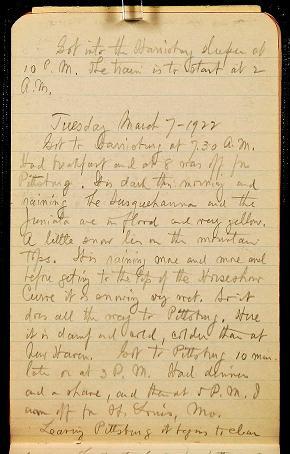 Got into the Harrisburg sleeper at
10 P.M. The train is to start at 2
A.M.
Tuesday March 7-1922
Got to Harrisburg at 7.30 A.M.
Had breakfast and at 8 was off for
Pittsburg. It is dark this morning and
raining. The Susquehanna and the
Juniata are in flood and very yellow.
A little snow lies on the mountain
tops. It is raining more and more and
before getting to the top of the Horseshoe
Curve it is snowing very wet. So it
does all the way to Pittsburg. Here
it is damp and cold, colder than at
New Haven. Got to Pittsburg 10 min.
late or at 3 P.M. Had dinner
and a shave, and then at 5 P.M. I
am off for St. Louis, Mo.
Leaving Pittsburg it begins to clear